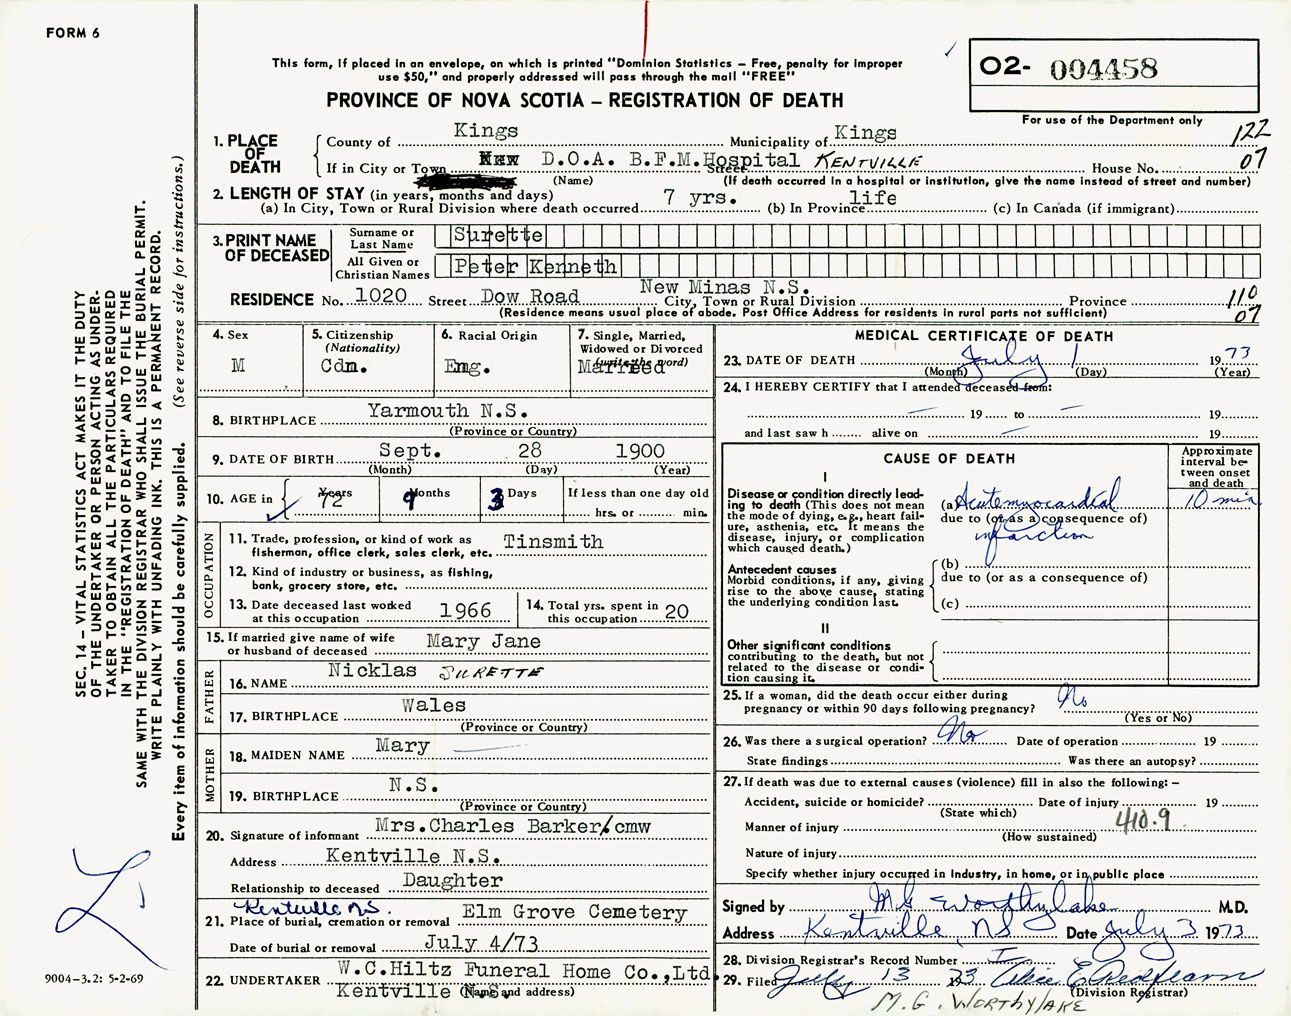 FORM 6
This form, if placed in an envelope, on which is printed "Dominion Statistics – Free, penalty for improper
use $50," and properly addressed will pass through the mail "FREE"
PROVINCE OF NOVA SCOTIA – REGISTRATION OF DEATH
02- 004458
For use of the Department only
122
07
1. PLACE OF DEATH
County of Kings Municipality of Kings
If in City or Town D.O.A. B.F.M. Hospital KENTVILLE Street House No.
(Name) (If death occurred in a hospital or institution, give the name instead of street and number)
2. LENGTH OF STAY (in years, months and days)
(a) In City, Town or Rural Division where death occurred 7 yrs. (b) In Province life (c) In Canada (if immigrant)
3. PRINT NAME OF DECEASED
Surname or Last Name Surette
All Given or Christian Names Peter Kenneth
RESIDENCE No. 1020 Street Dow Road New Minas N.S. City, Town or Rural Division Province
(Residence means usual place of abode. Post Office Address for residents in rural parts not sufficient)
110
07
4. Sex M
5. Citizenship (Nationality) Cdn.
6. Racial Origin Eng.
7. Single, Married, Widowed or Divorced (write the word) Married
8. BIRTHPLACE Yarmouth N.S.
(Province or Country)
9. DATE OF BIRTH Sept. 28 1900
(Month) (Day) (Year)
10. AGE in 72 Years 9 Months 3 Days If less than one day old
hrs. or min.
OCCUPATION
11. Trade, profession, or kind of work as fisherman, office clerk, sales clerk, etc. Tinsmith
12. Kind of industry or business, as fishing, bank, grocery store, etc.
13. Date deceased last worked at this occupation 1966
14. Total yrs. spent in this occupation 20
15. If married give name of wife or husband of deceased Mary Jane
FATHER
16. NAME Nicklas SURETTE
17. BIRTHPLACE Wales
(Province or Country)
MOTHER
18. MAIDEN NAME Mary
19. BIRTHPLACE N.S.
(Province or Country)
20. Signature of informant Mrs.Charles Barker/cmw
Address Kentville N.S.
Relationship to deceased Daughter
Kentville NS.
21. Place of burial, cremation or removal Elm Grove Cemetery
Date of burial or removal July 4/73
22. UNDERTAKER W.C.Hiltz Funeral Home Co.,Ltd.
Kentville N.S. (Name and address)
MEDICAL CERTIFICATE OF DEATH
23. DATE OF DEATH July 1 1973
(Month) (Day) (Year)
24. I HEREBY CERTIFY that I attended deceased from:
19 to 19
and last saw h alive on 19
CAUSE OF DEATH
Approximate interval between onset and death
I
Disease or condition directly leading to death (This does not mean the mode of dying, e.g., heart failure, asthenia, etc. It means the disease, injury, or complication which caused death.)
(a) Acute myocardial 10 min
due to (or as a consequence of)
infarction
Antecedent causes
Morbid conditions, if any, giving rise to the above cause, stating the underlying condition last.
(b)
due to (or as a consequence of)
(c)
II
Other significant conditions
contributing to the death, but not related to the disease or condition causing it.
25. If a woman, did the death occur either during
pregnancy or within 90 days following pregnancy? No
(Yes or No)
26. Was there a surgical operation? No Date of operation 19
State findings Was there an autopsy?
27. If death was due to external causes (violence) fill in also the following: –
Accident, suicide or homicide? Date of injury 19
(State which)
410.9
Manner of injury
(How sustained)
Nature of injury
Specify whether injury occurred in industry, in home, or in public place
Signed by M G Worthylake M.D.
Address Kentville, NS Date July 3 1973
28. Division Registrar's Record Number
29. Filed July 13 1973
(Division Registrar)
M.G. WORTHYLAKE
SEC. 14 – VITAL STATISTICS ACT MAKES IT THE DUTY
OF THE UNDERTAKER OR PERSON ACTING AS UNDER-
TAKER TO OBTAIN ALL THE PARTICULARS REQUIRED
IN THE "REGISTRATION OF DEATH" AND TO FILE THE
SAME WITH THE DIVISION REGISTRAR WHO SHALL ISSUE THE BURIAL PERMIT.
WRITE PLAINLY WITH UNFADING INK. THIS IS A PERMANENT RECORD.
Every item of information should be carefully supplied. (See reverse side for instructions.)
9004–3.2: 5-2-69